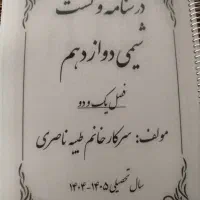 درسنامه و تست
شیمی دوازدهم
فصل یک و دو
مولف: سرکار خانم طیبه ناصری
سال تحصیلی ۱۴۰۵-۱۴۰۴